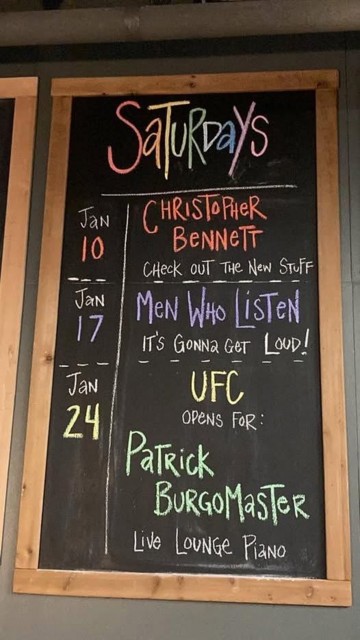 SaTURDaYS
Jan
10
CHRISTOPHER
BENNETT
CHECK OUT THE NEW STUFF
Jan
17
MEN WHO LISTEN
IT'S GONNA GET LOUD!
Jan
24
UFC
OPENS FOR:
PaTRICK
BURGOMaSTER
LIVE LOUNGE PIANO